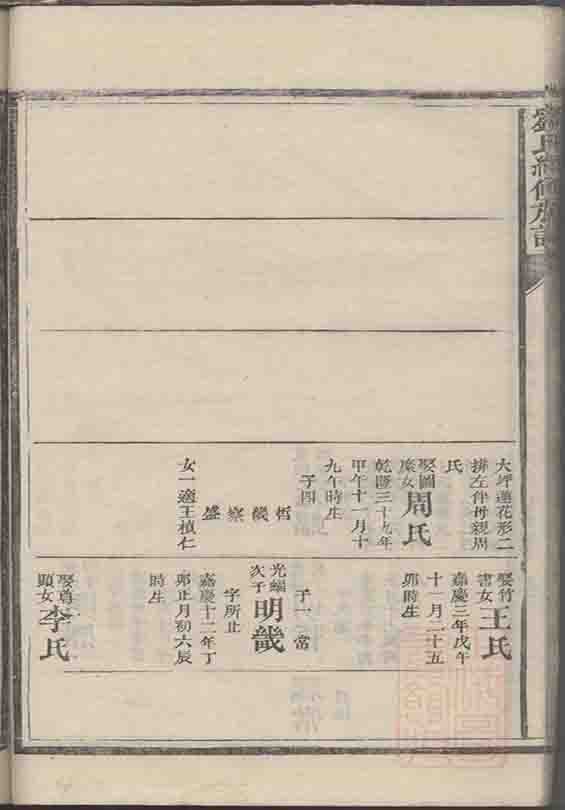 劉氏續修族譜
大坪蓮花形二
排左伴母親周
氏
娶圖
南女
周氏
乾隆三十九年
甲午十一月十
九午時生
子四
哲
畿
察
盛
女一適王楨仁
娶竹
書女
王氏
嘉慶三年戊午
十一月二十五
卯時生
子一 當
光緇
次子
明畿
字所止
嘉慶十二年丁
卯正月初六辰
時生
娶尊
顯女
李氏